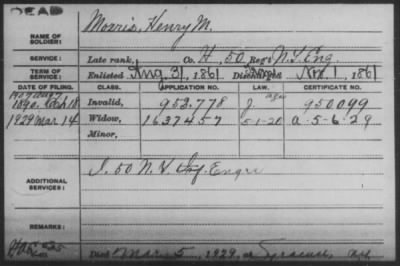 DEAD
NAME OF SOLDIER: Morris, Henry M.
SERVICE: Late rank, Co. H, 50 Reg't N.Y. Eng.
TERM OF SERVICE: Enlisted Aug. 31, 1861 Discharged Nov. 1, 1861
DATE OF FILING. CLASS. APPLICATION NO. LAW. CERTIFICATE NO.
1890. Invalid, 952.778 950099
1929 Mar 14 Widow, 1637457 5-1-20 a-5-6-29
Minor,
ADDITIONAL SERVICES: I. 50 N.Y. Engrs
REMARKS:
Died Mar 5, 1929, at Syracuse,